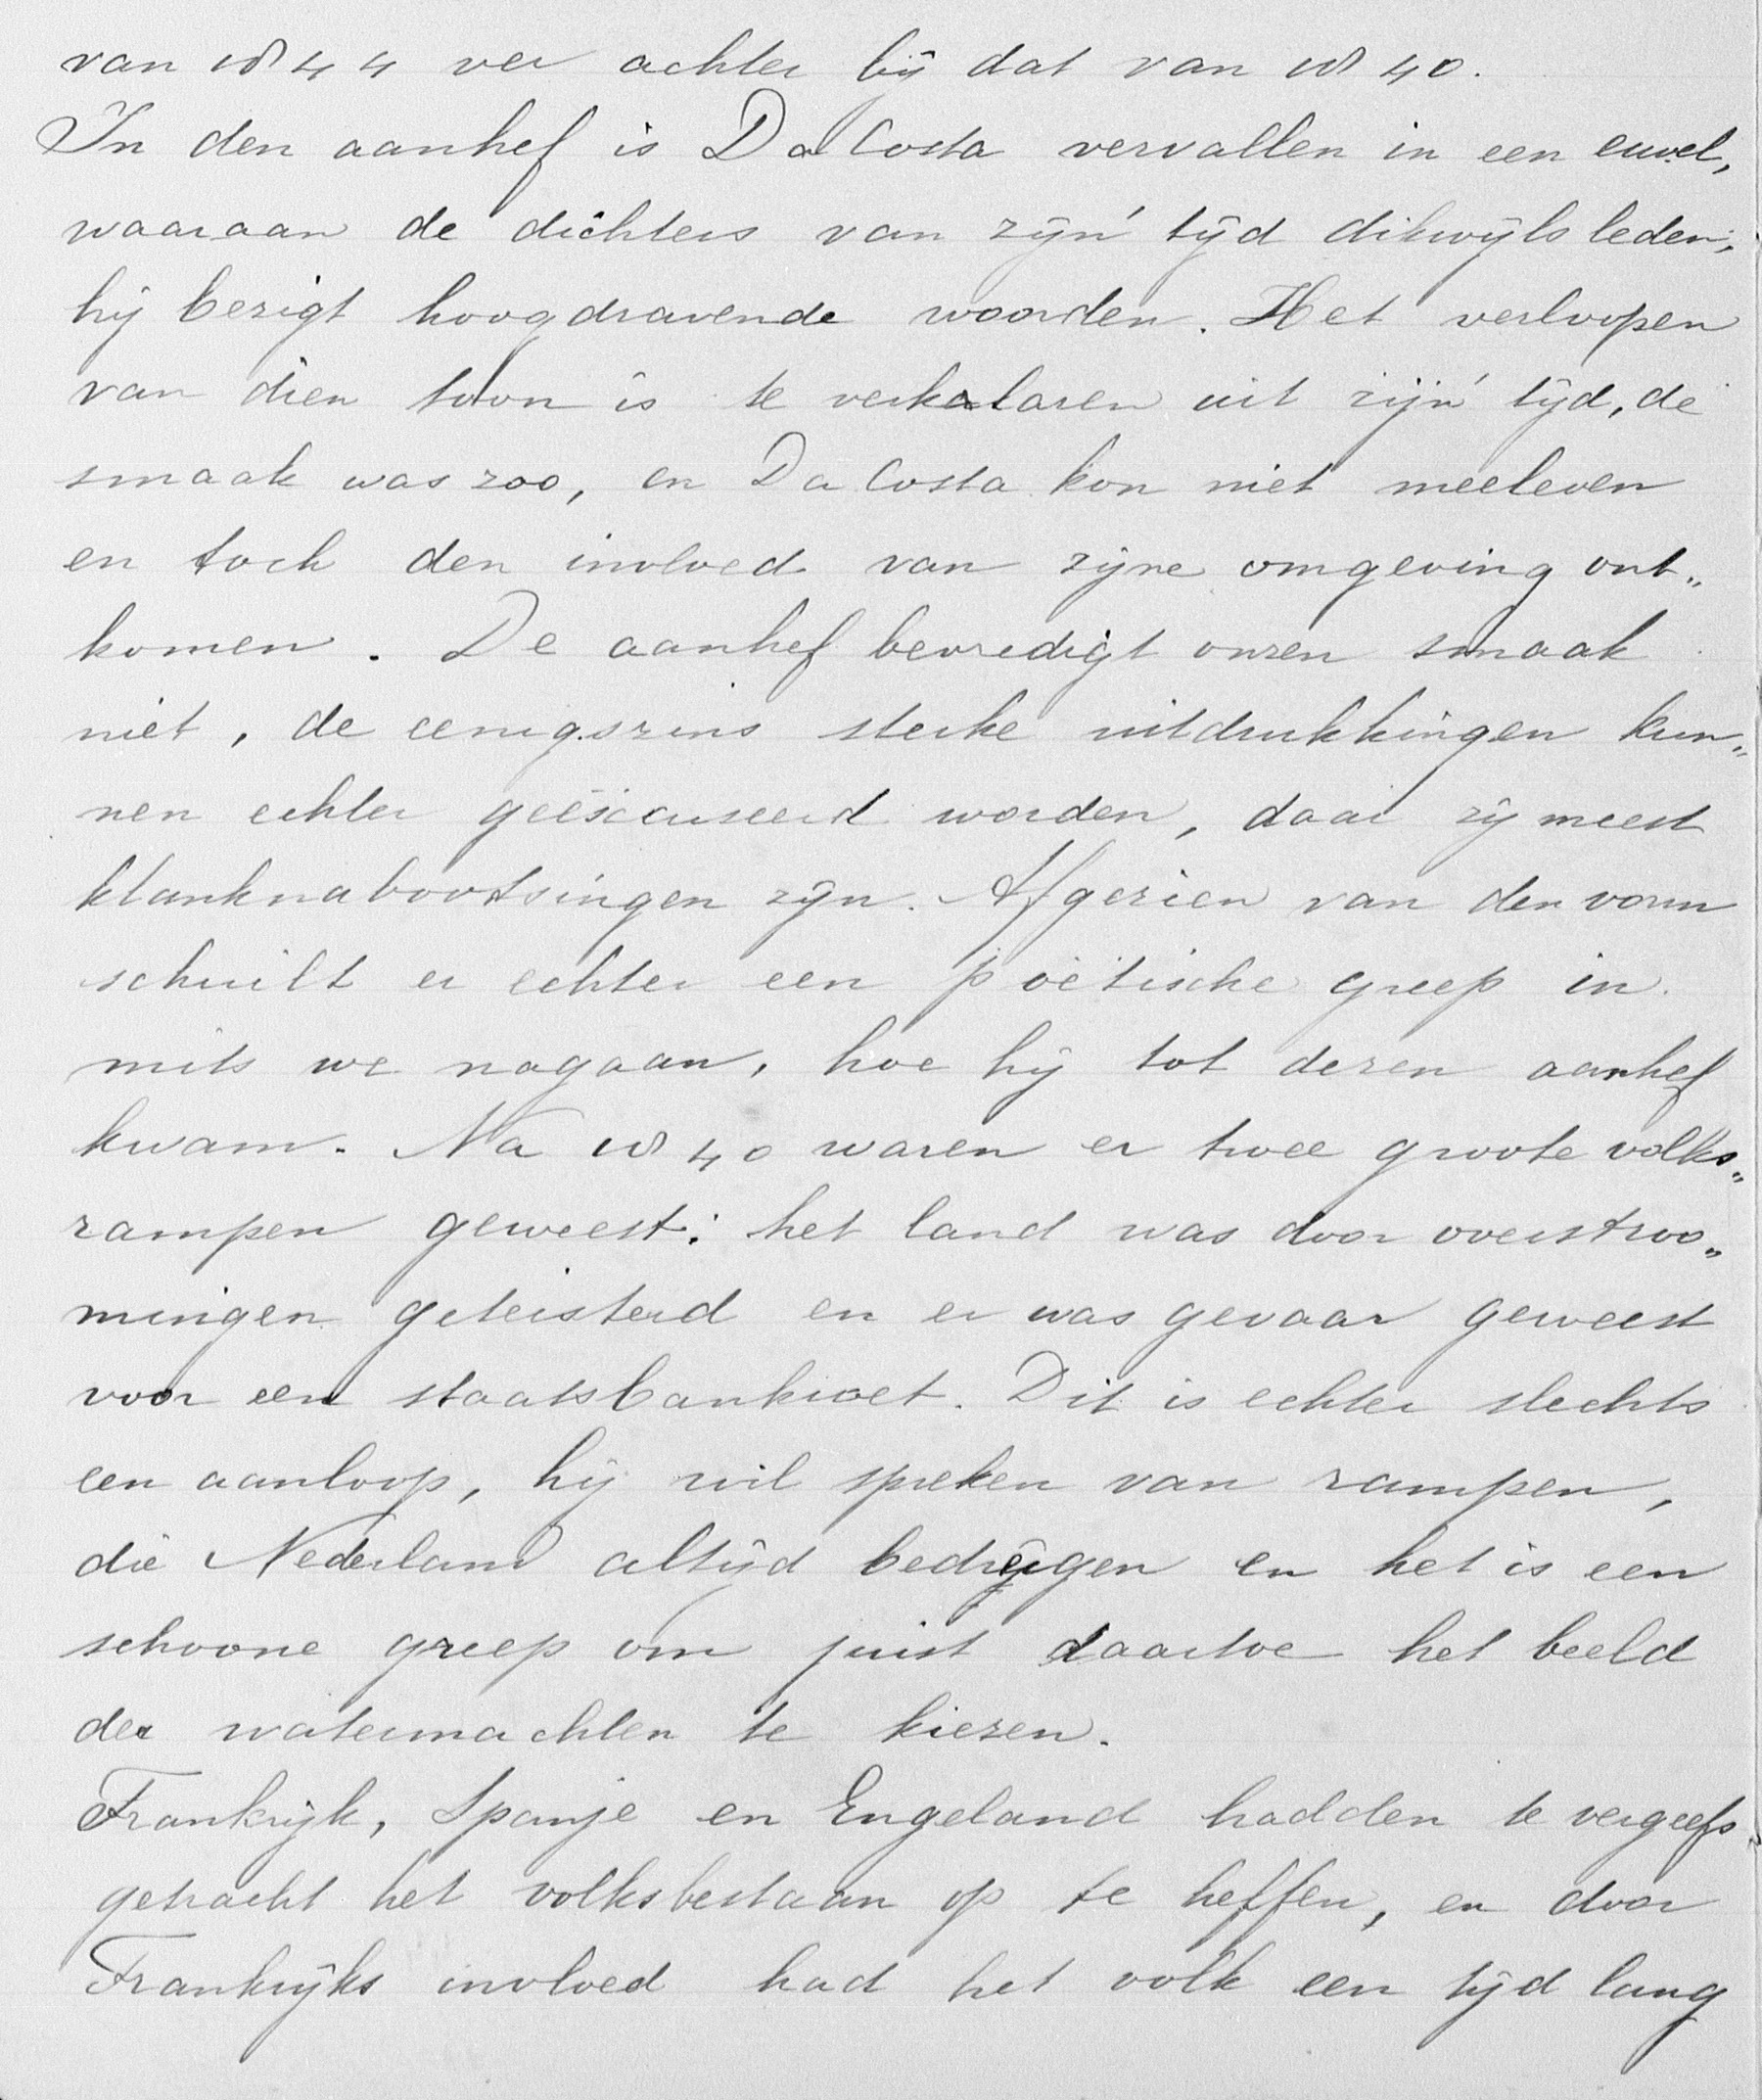 van 1844 ver achter bij dat van 1840.
In den aanhef is Da Costa vervallen in een euvel,
waaraan de dichters van zijn tijd dikwijls leden,
hij bezigt hoogdravende woorden. Het verloopen
van dien toon is te verkalaren uit zijn tijd, de
smaak was zoo, en Da Costa kon niet meeleven
en toch den invloed van zijne omgeving ont„
komen. De aanhef bevredigt onzen smaak
niet, de eenigszins sterke uitdrukkingen kun„
nen echter geëxcuseerd worden, daar zij meest
klanknabootsingen zijn. Afgezien van den vorm
schuilt er echter een poëtische greep in.
mits we nagaan, hoe hij tot dezen aanhef
kwam. Na 1840 waren er twee groote volks„
rampen geweest: het land was door overstroo„
mingen geteisterd en er was gevaar geweest
voor een staatsbankroet. Dit is echter slechts
een aanloop, hij wil spreken van rampen,
die Nederland altijd bedreigen en het is een
schoone greep om juist daartoe het beeld
der watermachten te kiezen.
Frankrijk, Spanje en Engeland hadden te vergeefs
getracht het volksbestaan op te heffen, en door
Frankrijks invloed had het volk een tijd lang